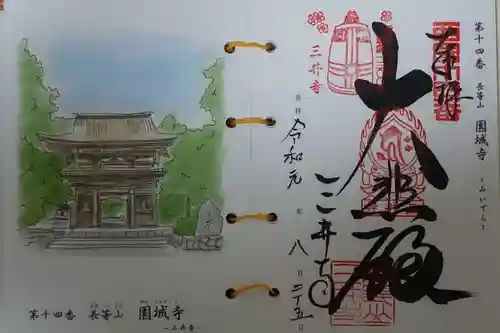 第十四番 長等山 園城寺 ～みいでら～
奉拝
大悲殿
三井寺
三井寺
奉拝 令和元年 八月二十五日
第十四番 長等山 園城寺
～三井寺～